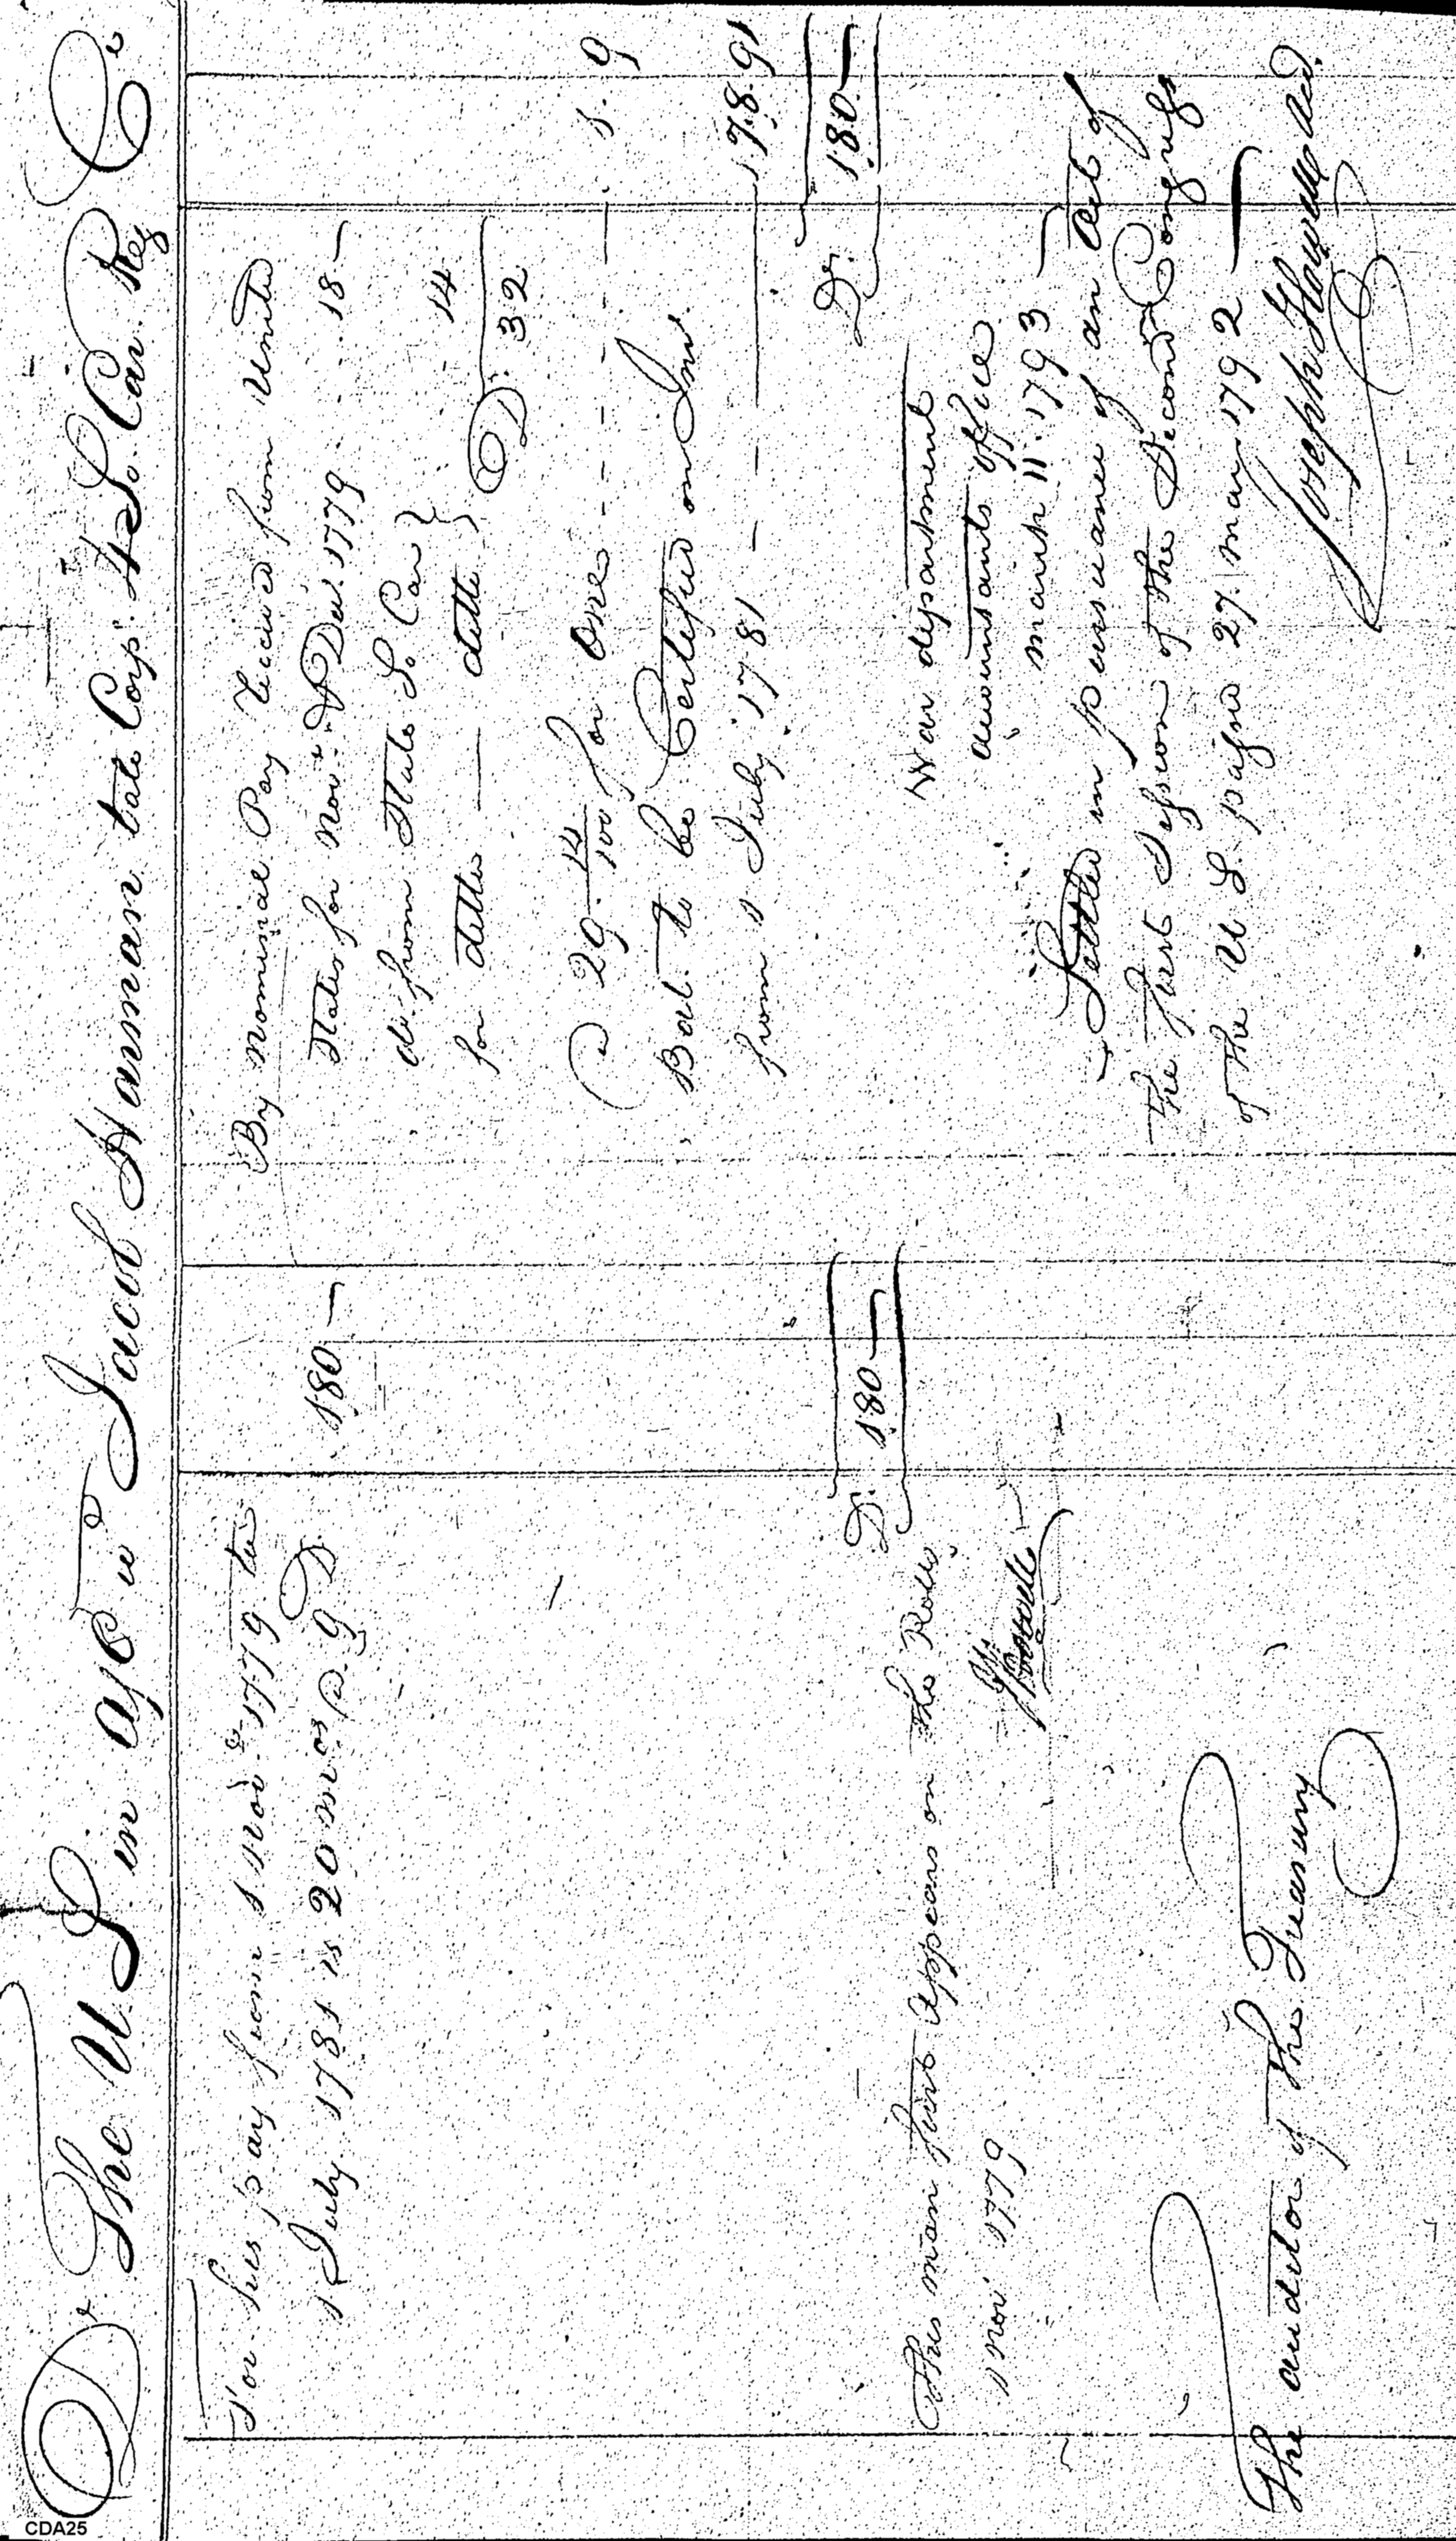 Dr The U S in a/c wt Jacob Hanman late Corpl 4 So. Car. Reg Cr
For his pay from 1 Novr 1779 to
1 July 1781 is 20 mos @ 9 D. 180 —
Dr. 180 —
This man first Appears on the Rolls
1 Nov 1779
Howell
The auditor of the Treasury
By Nominal Pay Received from United
States for Novr & Decr 1779 18 —
do. from State So. Car }
for ditto — ditto } 14
D. 32
@ 29 12/100 for One - - - - - 1. 9
Bal. to be Certified on Int.
from 1 July 1781 — — — 178.91
Dr. 180 —
War department
accountants office
march 11. 1793 —
Settled in pursuance of an Act of
the first Session of the Second Congress
of the U S. passed 27. mar. 1792 —
Joseph Howell Acct.
CDA25